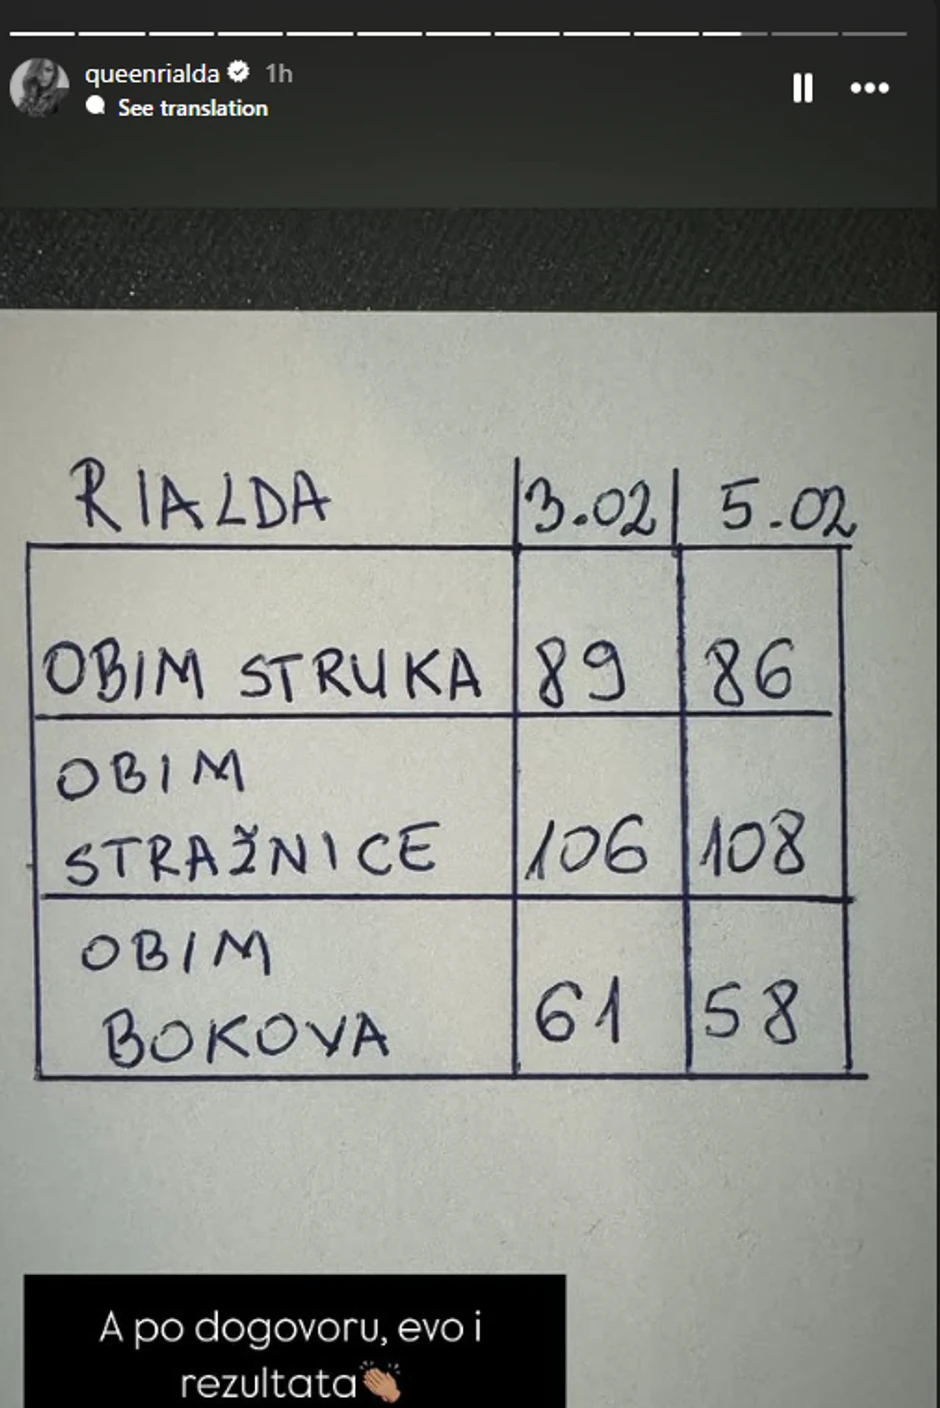 queenrialda 1h
See translation
RIALDA 3.02 5.02
OBIM STRUKA 89 86
OBIM
STRAŽNICE 106 108
OBIM
BOKOVA 61 58
A po dogovoru, evo i
rezultata👏🏼